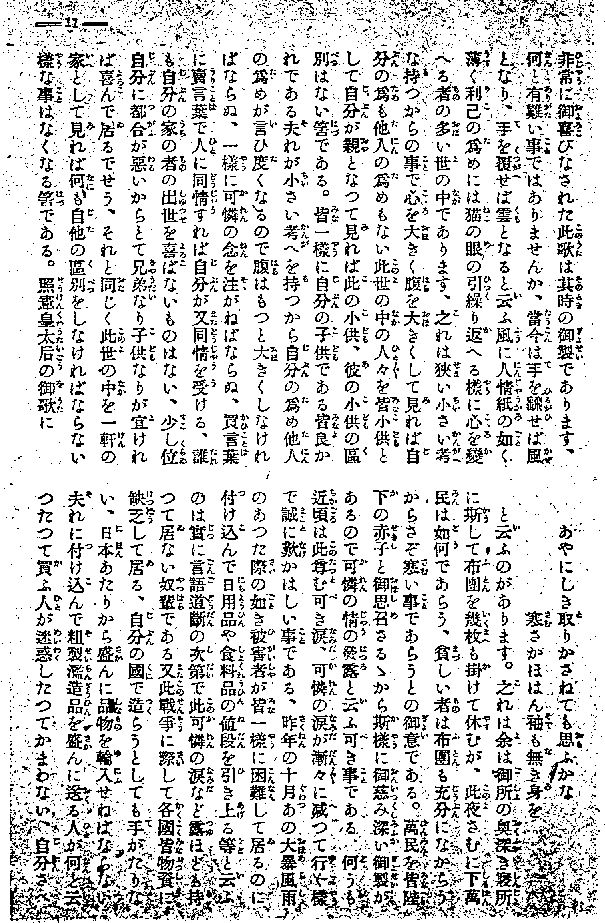 11
非常に御喜びなされた此歌は其時の御製であります、
何と有難い事ではありませんか、當今は手を飜せば風
となり、手を覆せば雲となると云ふ風に人情紙の如く
薄く利己の爲めには猫の眼の引繰り返へる樣に心を變
へる者の多い世の中であります、之れは狹い小さい考
な持つからの事で心を大きく腹を大きくして見れば自
分の爲も他人の爲めもない此世の中の人々を皆小供と
して自分が親となつて見れば此の小供、彼の小供の區
別はない筈である。皆一樣に自分の子供である皆良か
れである夫れが小さい考へを持つから自分の爲め他人
の爲めが言ひ度くなるので腹はもつと大きくしなけれ
ばならぬ、一樣に可憐の念を注がねばならぬ、買言葉
に賣言葉で人に同情すれば自分が又同情を受ける、誰
も自分の家の者の出世を喜ばないものはない、少し位
自分に都合が惡いからとて兄弟なり子供なりが宜けれ
ば喜んで居るでせう、それと同じく此世の中を一軒の
家として見れば何も自他の區別をしなければならない
樣な事はなくなる筈である。照憲皇太后の御歌に
あやにしき取りかさねても思ふかな
寒さがほはん袖も無き身を
と云ふのがあります。之れは余は御所の奧深き寢所
に斯して布團を幾枚も掛けて休むが、此夜さむに下萬
民は如何であらう、貧しい者は布團も充分になからう
からさぞ寒い事であらうとの御意である。萬民を皆陛
下の赤子と御思召さるゝから斯樣に御慈み深い御製が
あるので可憐の情の發露と云ふ可き事である 何うも
近頃は此尊む可き淚、可憐の淚が漸々に減つて行や樣
で誠に歎かはしい事である、昨年の十月あの大暴風雨
のあつた際の如き被害者が皆一樣に困難して居るのに
付け込んで日用品や食料品の値段を引き上る等と云ふ
のは實に言語道斷の次第で此可憐の淚など露ほども持
つて居ない奴輩である又此戰爭に際して各國皆物資に
缺乏して居る、自分の國で造らうとしても手がたりな
い、日本あたりから盛んに品物を輸入せねばならない
夫れに付け込んで粗製濫造品を盛んに送る人が何と云
つたつて買ふ人が迷惑したつてかまわない、自分さへ